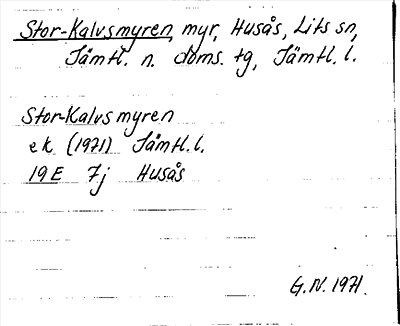 Stor-Kalvsmyren, myr, Husås, Lits sn,
Jämtl. n. doms. tg, Jämtl. l.
Stor-Kalvsmyren
ek (1971) Jämtl. l.
19E 7j Husås
G.N. 1971.